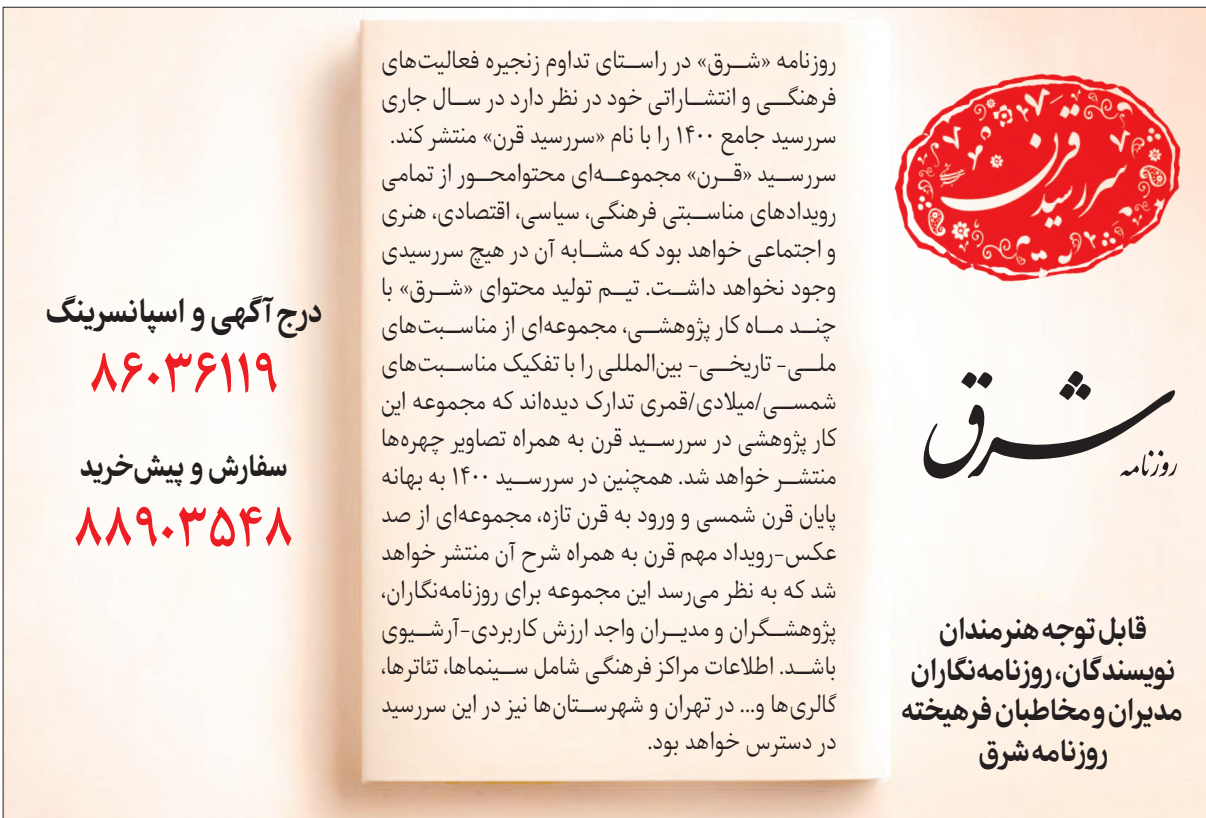 سررسید قرن
روزنامه
شرق
قابل توجه هنرمندان
نویسندگان، روزنامه‌نگاران
مدیران و مخاطبان فرهیخته
روزنامه شرق
روزنامه «شـرق» در راسـتای تداوم زنجیره فعالیت‌های
فرهنگـی و انتشـاراتی خود در نظر دارد در سـال جاری
سررسید جامع ۱۴۰۰ را با نام «سررسید قرن» منتشر کند.
سررسـید «قـرن» مجموعـه‌ای محتوامحـور از تمامی
رویدادهای مناسـبتی فرهنگی، سیاسی، اقتصادی، هنری
و اجتماعی خواهد بود که مشـابه آن در هیچ سررسیدی
وجود نخواهد داشـت. تیـم تولید محتوای «شـرق» با
چنـد مـاه کار پژوهشـی، مجموعه‌ای از مناسـبت‌های
ملـی- تاریخـی- بین‌المللی را با تفکیک مناسـبت‌های
شمسـی/میلادی/قمری تدارک دیده‌اند که مجموعه این
کار پژوهشی در سررسـید قرن به همراه تصاویر چهره‌ها
منتشـر خواهد شد. همچنین در سررسـید ۱۴۰۰ به بهانه
پایان قرن شمسی و ورود به قرن تازه، مجموعه‌ای از صد
عکس-رویداد مهم قرن به همراه شرح آن منتشر خواهد
شد که به نظر می‌رسد این مجموعه برای روزنامه‌نگاران،
پژوهشـگران و مدیـران واجد ارزش کاربردی-آرشـیوی
باشـد. اطلاعات مراکز فرهنگی شامل سـینماها، تئاترها،
گالری‌ها و... در تهران و شهرسـتان‌ها نیز در این سررسید
در دسترس خواهد بود.
درج آگهی و اسپانسرینگ
۸۶۰۳۶۱۱۹
سفارش و پیش‌خرید
۸۸۹۰۳۵۴۸